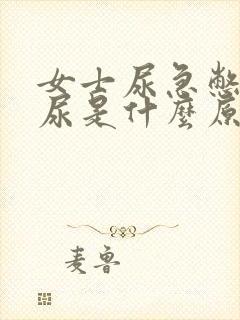 女士尿急憋
尿是什麼原
麦鲁